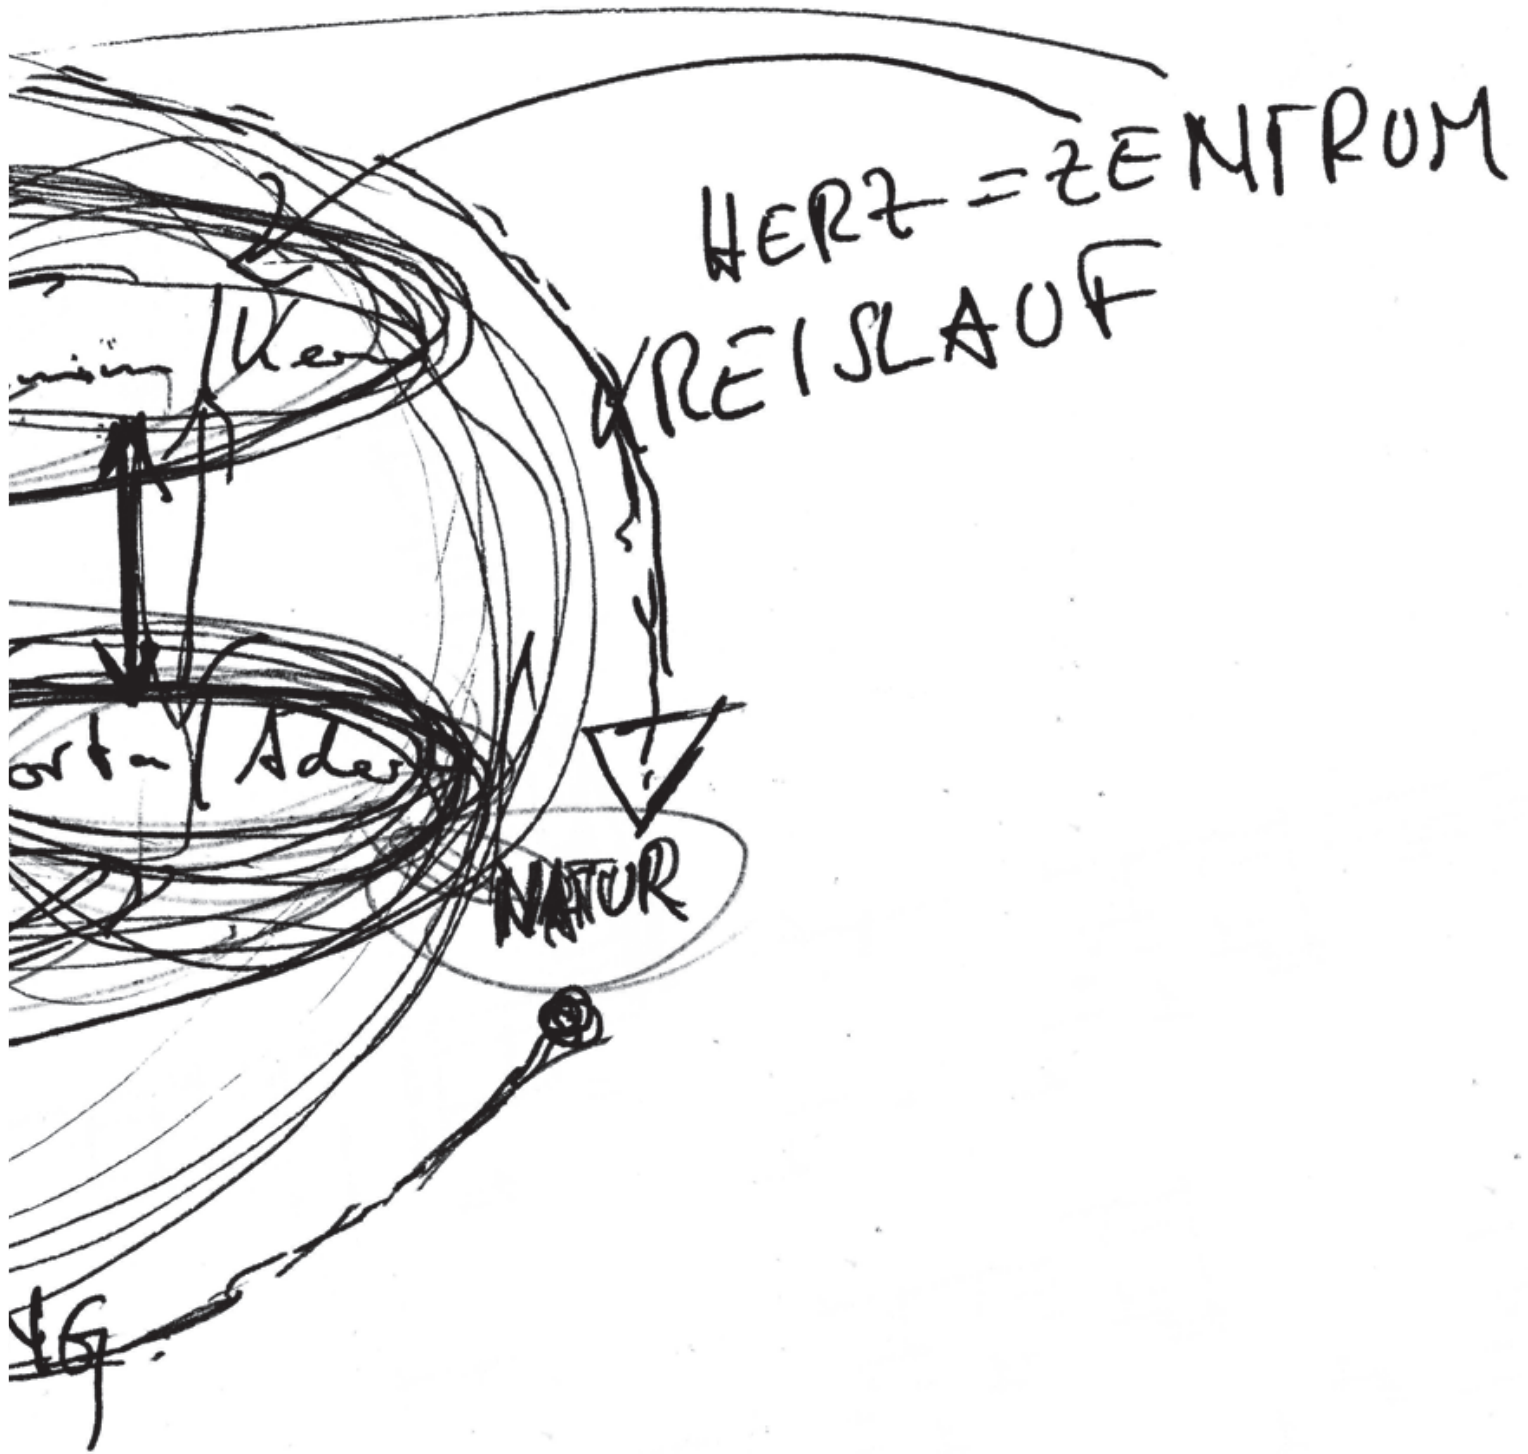 HERZ = ZENTRUM
KREISLAUF
orta / Ader
NATUR